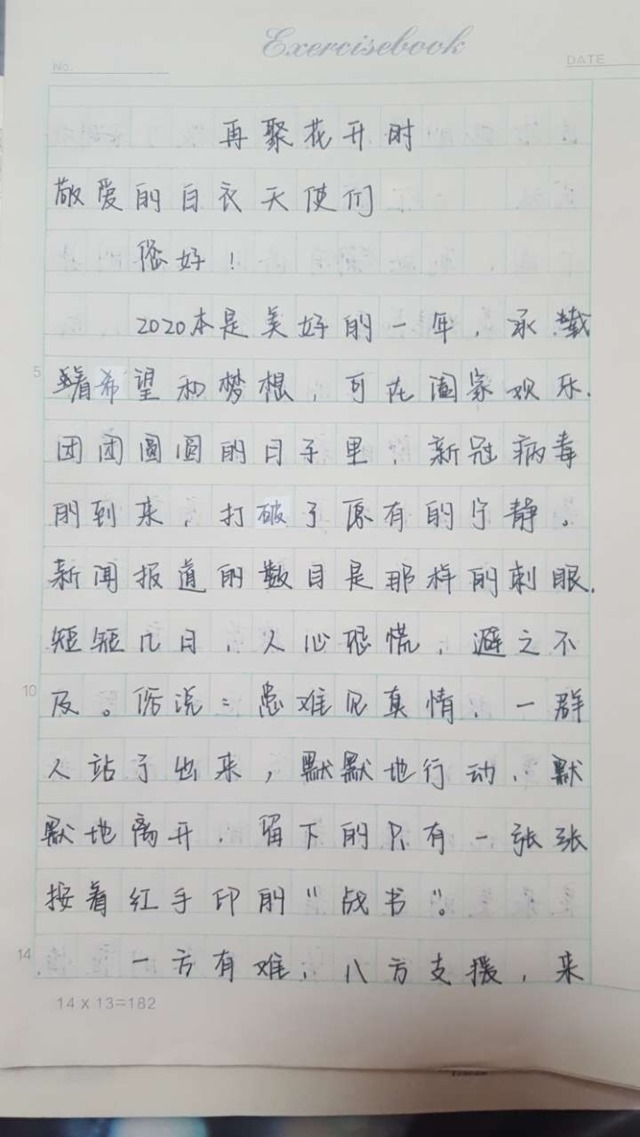 Exercisebook
No.
DATE
再聚花开时
敬爱的白衣天使们
您好！
2020本是美好的一年，承载
着希望和梦想，可在阖家欢乐.
团团圆圆的日子里，新冠病毒
的到来，打破了原有的宁静。
新闻报道的数目是那样的刺眼.
短短几日，人心恐慌，避之不
10
及。俗说：患难见真情，一群
人站了出来，默默地行动，默
默地离开，留下的只有一张张
按着红手印的“战书”。
14
一方有难，八方支援，来
5
14 x 13=182